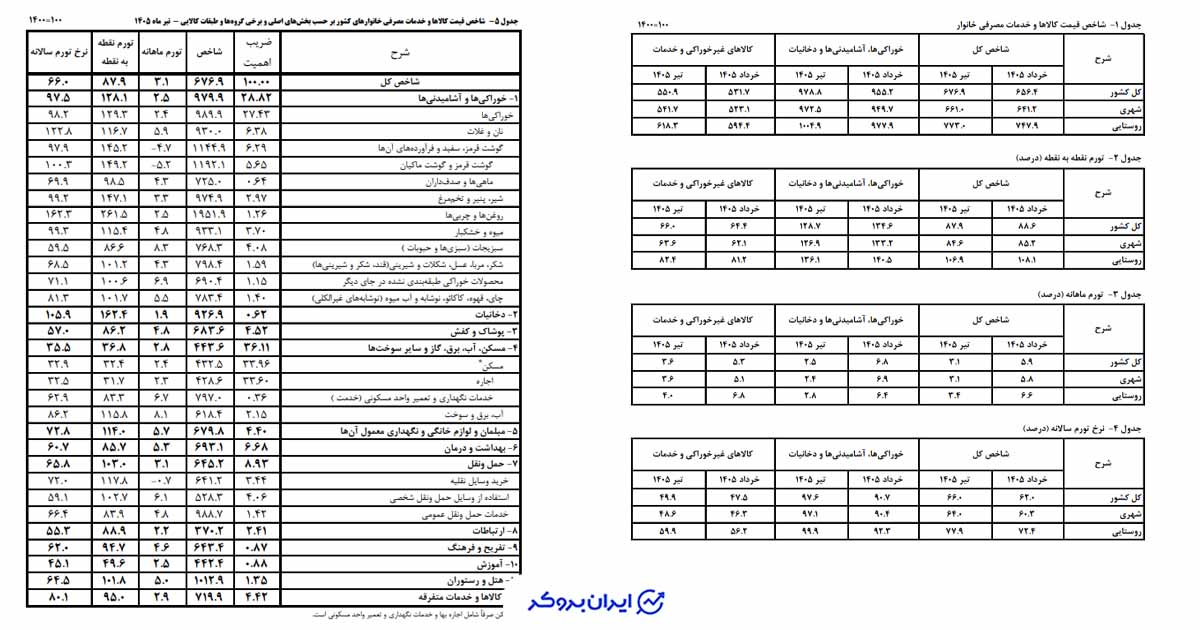 جدول ۱- شاخص قیمت کالاها و خدمات مصرفی خانوار ۱۴۰۰=۱۰۰
شرح شاخص کل خوراکی‌ها، آشامیدنی‌ها و دخانیات کالاهای غیرخوراکی و خدمات
خرداد ۱۴۰۵ تیر ۱۴۰۵ خرداد ۱۴۰۵ تیر ۱۴۰۵ خرداد ۱۴۰۵ تیر ۱۴۰۵
کل کشور ۶۵۶.۴ ۶۷۶.۹ ۹۵۵.۲ ۹۷۸.۸ ۵۳۱.۷ ۵۵۰.۹
شهری ۶۴۱.۲ ۶۶۱.۰ ۹۴۹.۷ ۹۷۲.۵ ۵۲۳.۱ ۵۴۱.۷
روستایی ۷۴۷.۹ ۷۷۳.۰ ۹۷۷.۹ ۱۰۰۴.۹ ۵۹۴.۴ ۶۱۸.۳
جدول ۲- تورم نقطه به نقطه (درصد)
شرح شاخص کل خوراکی‌ها، آشامیدنی‌ها و دخانیات کالاهای غیرخوراکی و خدمات
خرداد ۱۴۰۵ تیر ۱۴۰۵ خرداد ۱۴۰۵ تیر ۱۴۰۵ خرداد ۱۴۰۵ تیر ۱۴۰۵
کل کشور ۸۸.۶ ۸۷.۹ ۱۳۴.۶ ۱۲۸.۷ ۶۴.۴ ۶۶.۰
شهری ۸۵.۲ ۸۴.۶ ۱۳۳.۲ ۱۲۶.۹ ۶۲.۱ ۶۳.۶
روستایی ۱۰۸.۱ ۱۰۶.۹ ۱۴۰.۵ ۱۳۶.۱ ۸۱.۲ ۸۲.۴
جدول ۳- تورم ماهانه (درصد)
شرح شاخص کل خوراکی‌ها، آشامیدنی‌ها و دخانیات کالاهای غیرخوراکی و خدمات
خرداد ۱۴۰۵ تیر ۱۴۰۵ خرداد ۱۴۰۵ تیر ۱۴۰۵ خرداد ۱۴۰۵ تیر ۱۴۰۵
کل کشور ۵.۹ ۳.۱ ۶.۸ ۲.۵ ۵.۳ ۳.۶
شهری ۵.۸ ۳.۱ ۶.۹ ۲.۴ ۵.۱ ۳.۶
روستایی ۶.۶ ۳.۴ ۶.۴ ۲.۸ ۶.۸ ۴.۰
جدول ۴- نرخ تورم سالانه (درصد)
شرح شاخص کل خوراکی‌ها، آشامیدنی‌ها و دخانیات کالاهای غیرخوراکی و خدمات
خرداد ۱۴۰۵ تیر ۱۴۰۵ خرداد ۱۴۰۵ تیر ۱۴۰۵ خرداد ۱۴۰۵ تیر ۱۴۰۵
کل کشور ۶۲.۰ ۶۶.۰ ۹۰.۷ ۹۷.۶ ۴۷.۵ ۴۹.۹
شهری ۶۰.۳ ۶۴.۰ ۹۰.۴ ۹۷.۱ ۴۶.۳ ۴۸.۶
روستایی ۷۲.۴ ۷۷.۹ ۹۲.۳ ۹۹.۹ ۵۶.۲ ۵۹.۹
ایران بروکر
جدول ۵- شاخص قیمت کالاها و خدمات مصرفی خانوارهای کشور بر حسب بخش‌های اصلی و برخی گروه‌ها و طبقات کالایی - تیر ماه ۱۴۰۵ ۱۴۰۰=۱۰۰
شرح ضریب اهمیت شاخص تورم ماهانه تورم نقطه به نقطه نرخ تورم سالانه
شاخص کل ۱۰۰.۰۰ ۶۷۶.۹ ۳.۱ ۸۷.۹ ۶۶.۰
۱- خوراکی‌ها و آشامیدنی‌ها ۲۸.۸۲ ۹۷۹.۹ ۲.۵ ۱۲۸.۱ ۹۷.۵
خوراکی‌ها ۲۷.۴۳ ۹۸۹.۹ ۲.۴ ۱۲۹.۳ ۹۸.۲
نان و غلات ۶.۳۸ ۹۳۰.۰ ۵.۹ ۱۱۶.۷ ۱۲۲.۸
گوشت قرمز، سفید و فرآورده‌های آن‌ها ۶.۲۹ ۱۱۴۴.۹ -۴.۷ ۱۴۵.۲ ۹۷.۹
گوشت قرمز و گوشت ماکیان ۵.۶۵ ۱۱۹۲.۱ -۵.۲ ۱۴۹.۲ ۱۰۰.۳
ماهی‌ها و صدف‌داران ۰.۶۴ ۷۲۵.۰ ۴.۳ ۹۸.۵ ۶۹.۹
شیر، پنیر و تخم‌مرغ ۲.۹۷ ۹۷۴.۹ ۳.۳ ۱۴۷.۱ ۹۹.۲
روغن‌ها و چربی‌ها ۱.۲۶ ۱۹۵۱.۹ ۲.۵ ۲۶۱.۵ ۱۶۲.۳
میوه و خشکبار ۳.۷۰ ۹۳۳.۱ ۴.۸ ۱۱۵.۴ ۹۹.۳
سبزیجات (سبزی‌ها و حبوبات ) ۴.۰۸ ۷۶۸.۳ ۸.۳ ۸۶.۶ ۵۹.۵
شکر، مربا، عسل، شکلات و شیرینی(قند، شکر و شیرینی‌ها) ۱.۵۹ ۷۹۸.۴ ۴.۳ ۱۰۱.۲ ۶۸.۵
محصولات خوراکی طبقه‌بندی نشده در جای دیگر ۱.۱۵ ۶۹۰.۴ ۶.۹ ۱۰۰.۶ ۷۱.۱
چای، قهوه، کاکائو، نوشابه و آب میوه (نوشابه‌های غیرالکلی) ۱.۴۰ ۷۸۳.۴ ۵.۵ ۱۰۱.۷ ۸۱.۳
۲- دخانیات ۰.۶۲ ۹۲۶.۹ ۱.۹ ۱۶۲.۴ ۱۰۵.۹
۳- پوشاک و کفش ۴.۵۲ ۶۸۳.۶ ۴.۸ ۸۶.۲ ۵۷.۰
۴- مسکن، آب، برق، گاز و سایر سوخت‌ها ۳۶.۱۱ ۴۴۳.۶ ۲.۸ ۳۶.۸ ۳۵.۵
مسکن* ۳۳.۹۶ ۴۳۲.۵ ۲.۴ ۳۲.۴ ۳۲.۹
اجاره ۳۳.۶۰ ۴۲۸.۶ ۲.۳ ۳۱.۷ ۳۲.۵
خدمات نگهداری و تعمیر واحد مسکونی (خدمت ) ۰.۳۶ ۷۹۷.۰ ۶.۷ ۸۳.۳ ۶۲.۹
آب، برق و سوخت ۲.۱۵ ۶۱۸.۴ ۸.۱ ۱۱۵.۸ ۸۶.۲
۵- مبلمان و لوازم خانگی و نگهداری معمول آن‌ها ۴.۴۰ ۶۷۹.۸ ۵.۷ ۱۱۴.۰ ۷۲.۸
۶- بهداشت و درمان ۶.۶۸ ۶۹۳.۱ ۵.۳ ۸۵.۷ ۶۰.۷
۷- حمل ونقل ۸.۹۳ ۶۴۵.۲ ۳.۱ ۱۰۳.۰ ۶۵.۸
خرید وسایل نقلیه ۳.۴۴ ۶۴۱.۲ -۰.۷ ۱۱۷.۸ ۷۲.۰
استفاده از وسایل حمل ونقل شخصی ۴.۰۶ ۵۲۸.۳ ۶.۱ ۱۰۲.۷ ۵۹.۱
خدمات حمل ونقل عمومی ۱.۴۲ ۹۸۸.۷ ۴.۸ ۸۳.۹ ۶۶.۴
۸- ارتباطات ۲.۴۱ ۳۷۰.۲ ۲.۲ ۸۸.۹ ۵۵.۳
۹- تفریح و فرهنگ ۰.۸۷ ۶۴۳.۴ ۴.۶ ۹۴.۷ ۶۲.۰
۱۰- آموزش ۰.۸۸ ۴۴۲.۴ ۲.۵ ۴۹.۶ ۴۵.۱
- هتل و رستوران ۱.۳۵ ۱۰۱۲.۹ ۵.۰ ۱۰۱.۸ ۶۴.۵
کالاها و خدمات متفرقه ۴.۴۲ ۷۱۹.۹ ۲.۹ ۹۵.۰ ۸۰.۱
کن صرفاً شامل اجاره بها و خدمات نگهداری و تعمیر واحد مسکونی است.